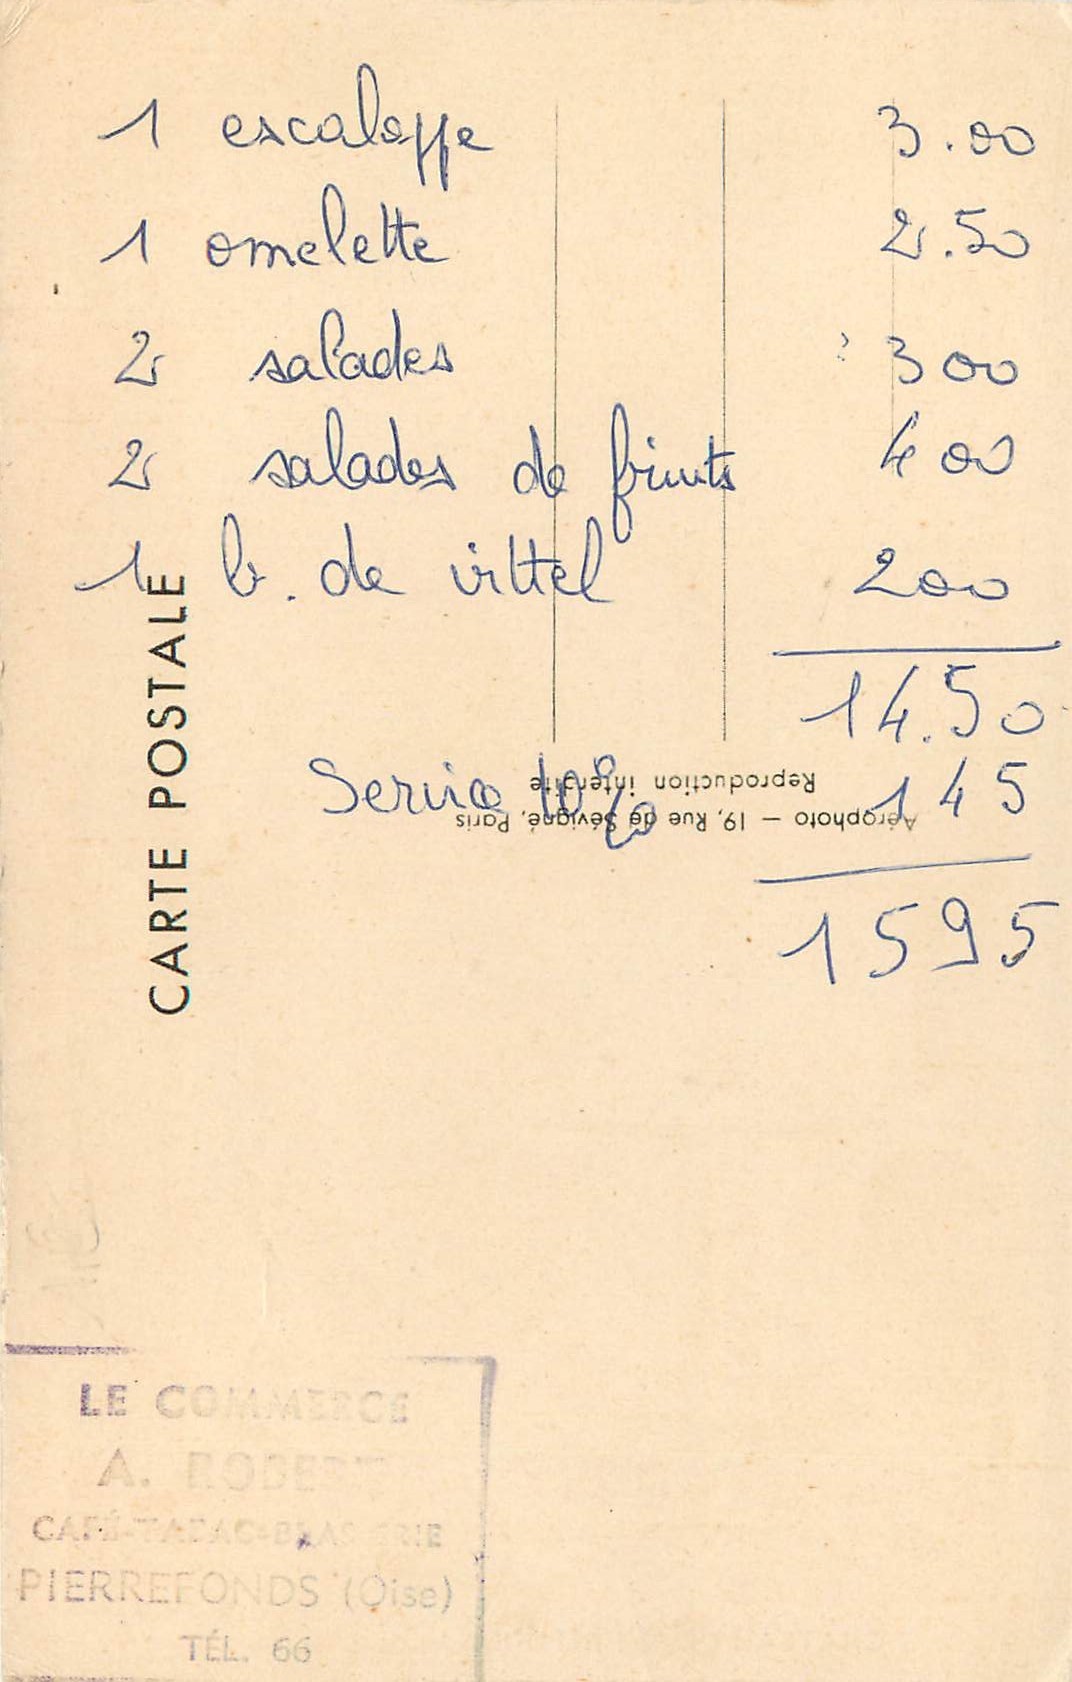 1 escaloppe 3.00
1 omelette 2.50
2 salades 300
2 salades de fruits 400
1 b. de vittel 200
14.50
Service 10% 145
1595
CARTE POSTALE
Reproduction interdite
Aérophoto — 19, Rue de Sévigné, Paris
LE COMMERCE
A. ROBERT
CAFÉ-TABAC-BRASSERIE
PIERREFONDS (Oise)
TÉL. 66